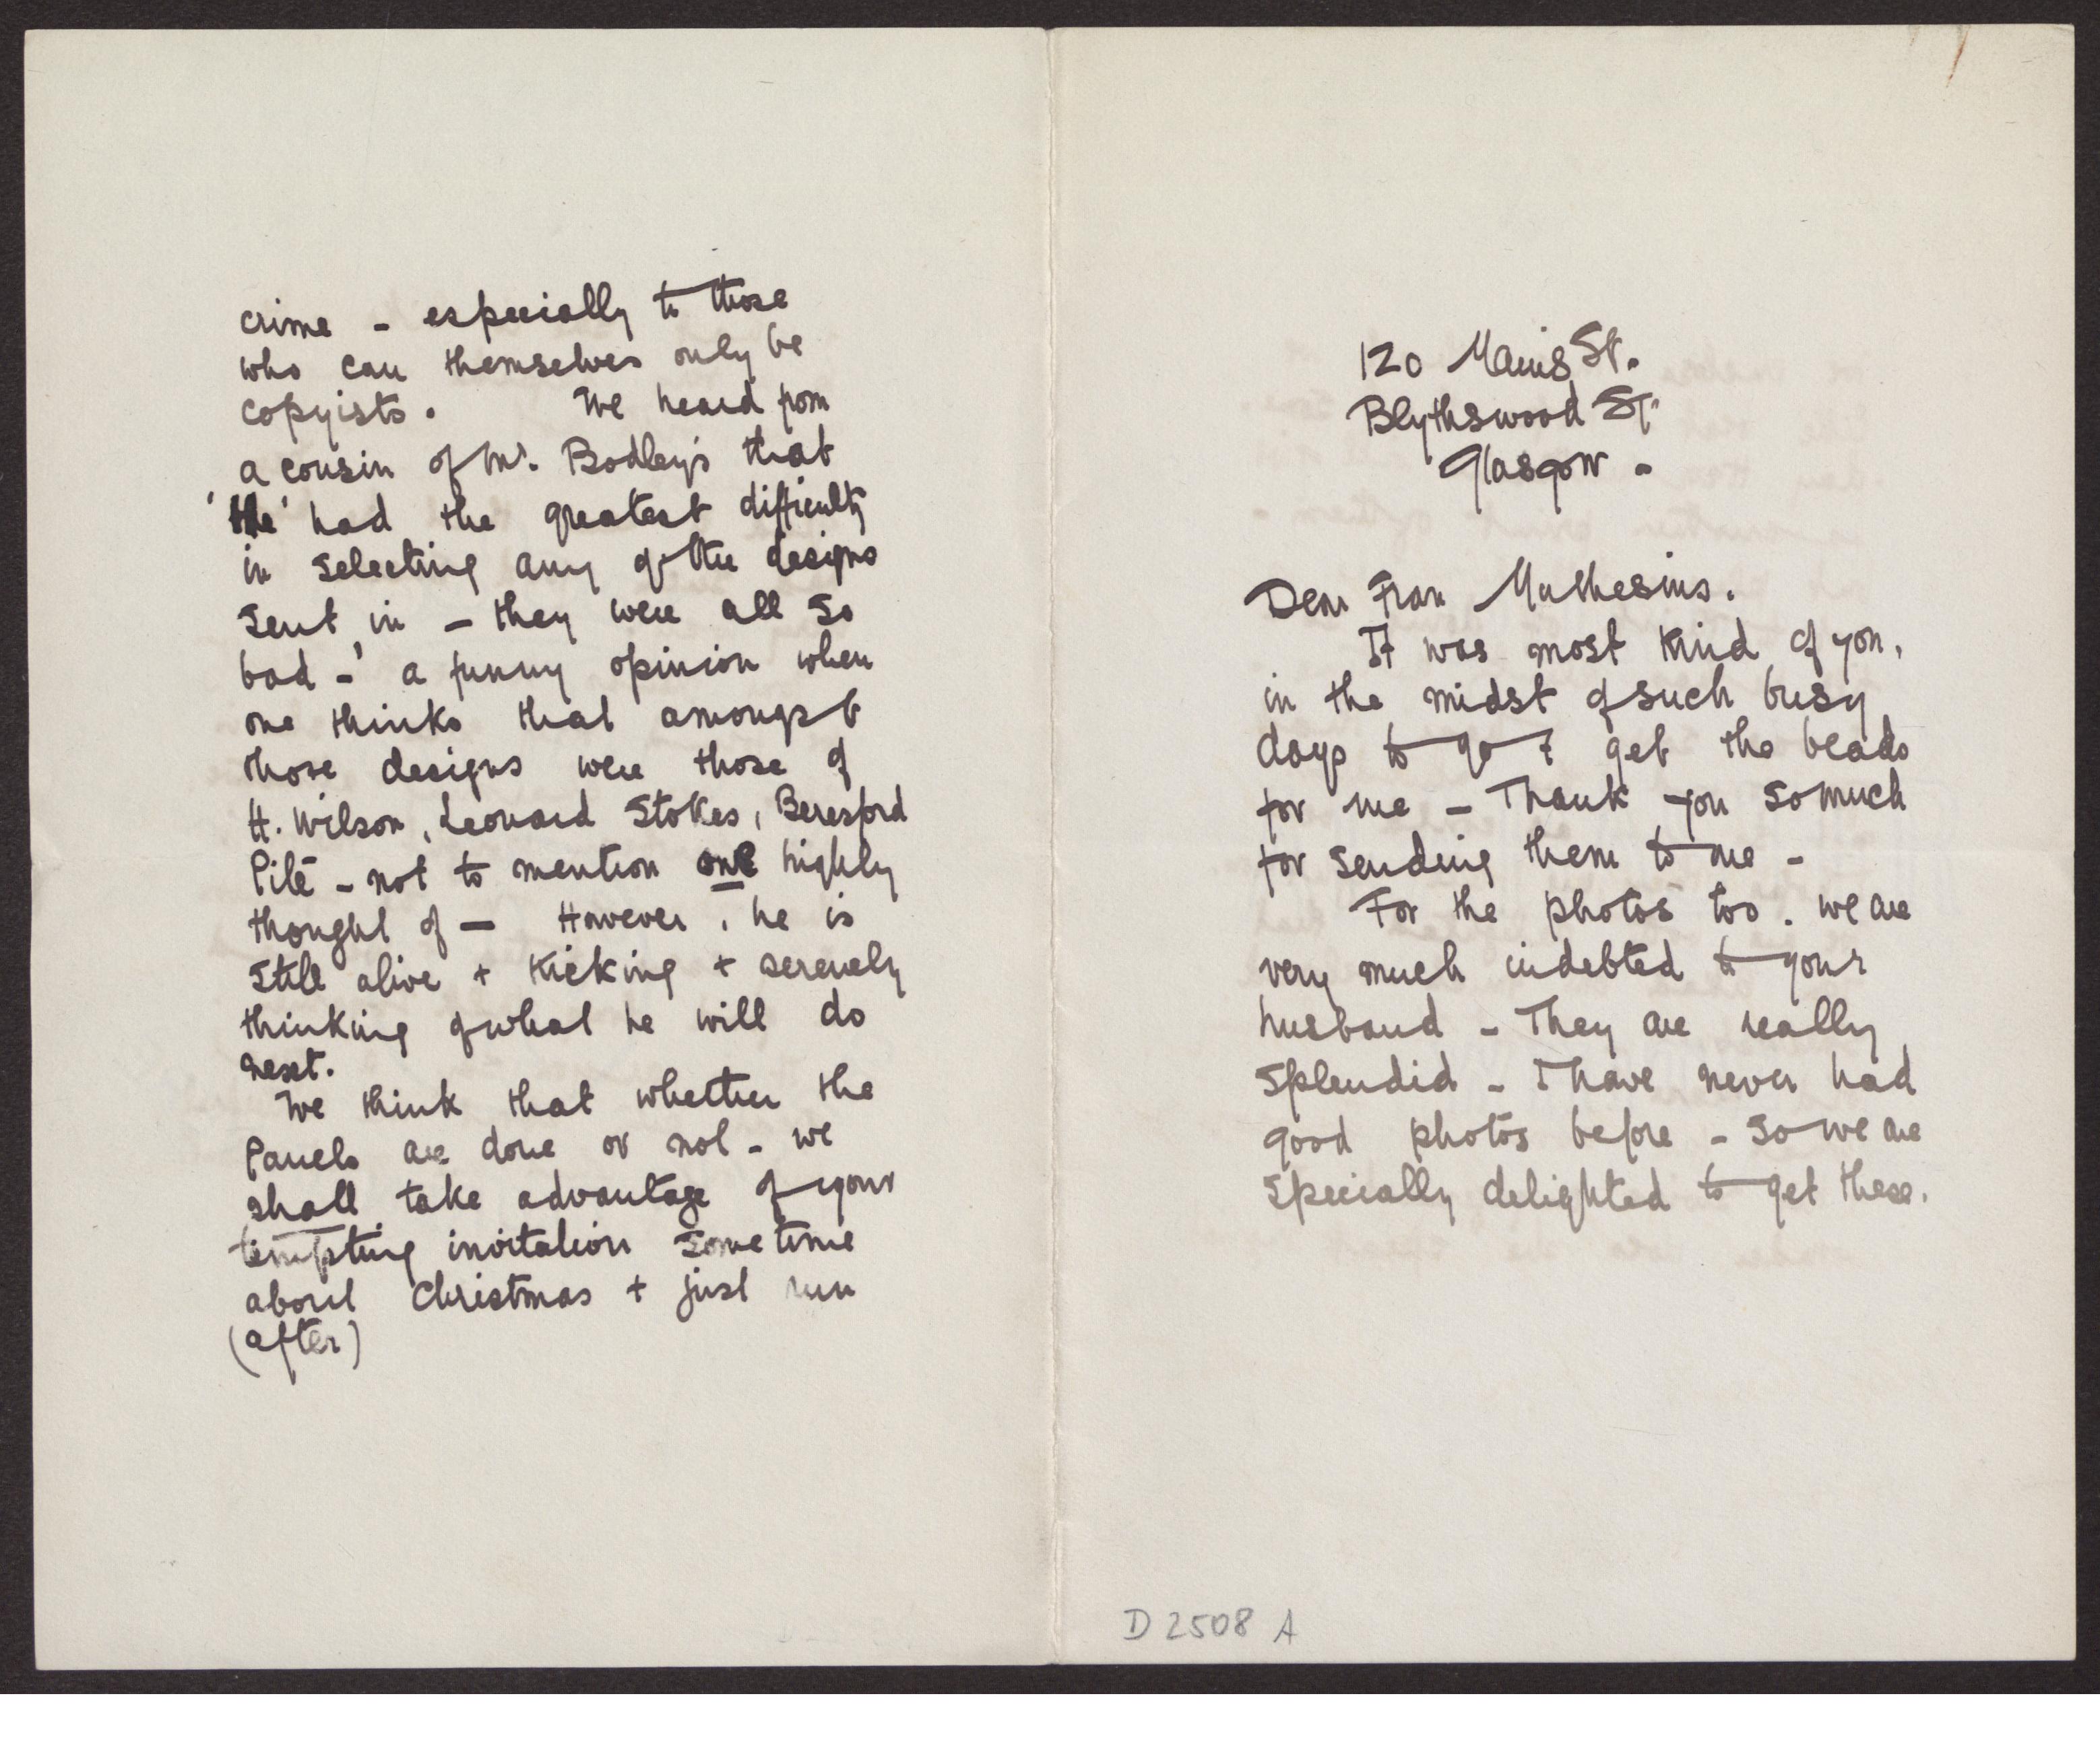 120 Mains St.
Blythswood Sq.
Glasgow -
Dear Frau Muthesius.
It was most kind of you,
in the midst of such busy
days to go & get the beads
for me - Thank you so much
for sending them to me -
For the photos too. we are
very much indebted to your
husband - They are really
splendid - I have never had
good photos before - so we are
specially delighted to get these.
D 2508 A
crime - especially to those
who can themselves only be
copyists. We heard from
a cousin of Mr. Bodley's that
'He' had the greatest difficulty
in selecting any of the designs
sent in - they were all so
bad -' a funny opinion when
one thinks that amongst
those designs were those of
H. Wilson, Leonard Stokes, Beresford
Pite - not to mention one highly
thought of — However, he is
still alive + kicking + serenely
thinking of what he will do
next.
We think that whether the
panels are done or not - we
shall take advantage of your
tempting invitation sometime
about Christmas + just run
(after)